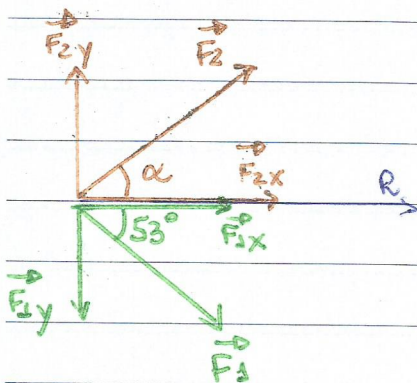 F₂y
F₂
α
F₂x
R
53°
F₁x
F₁y
F₁